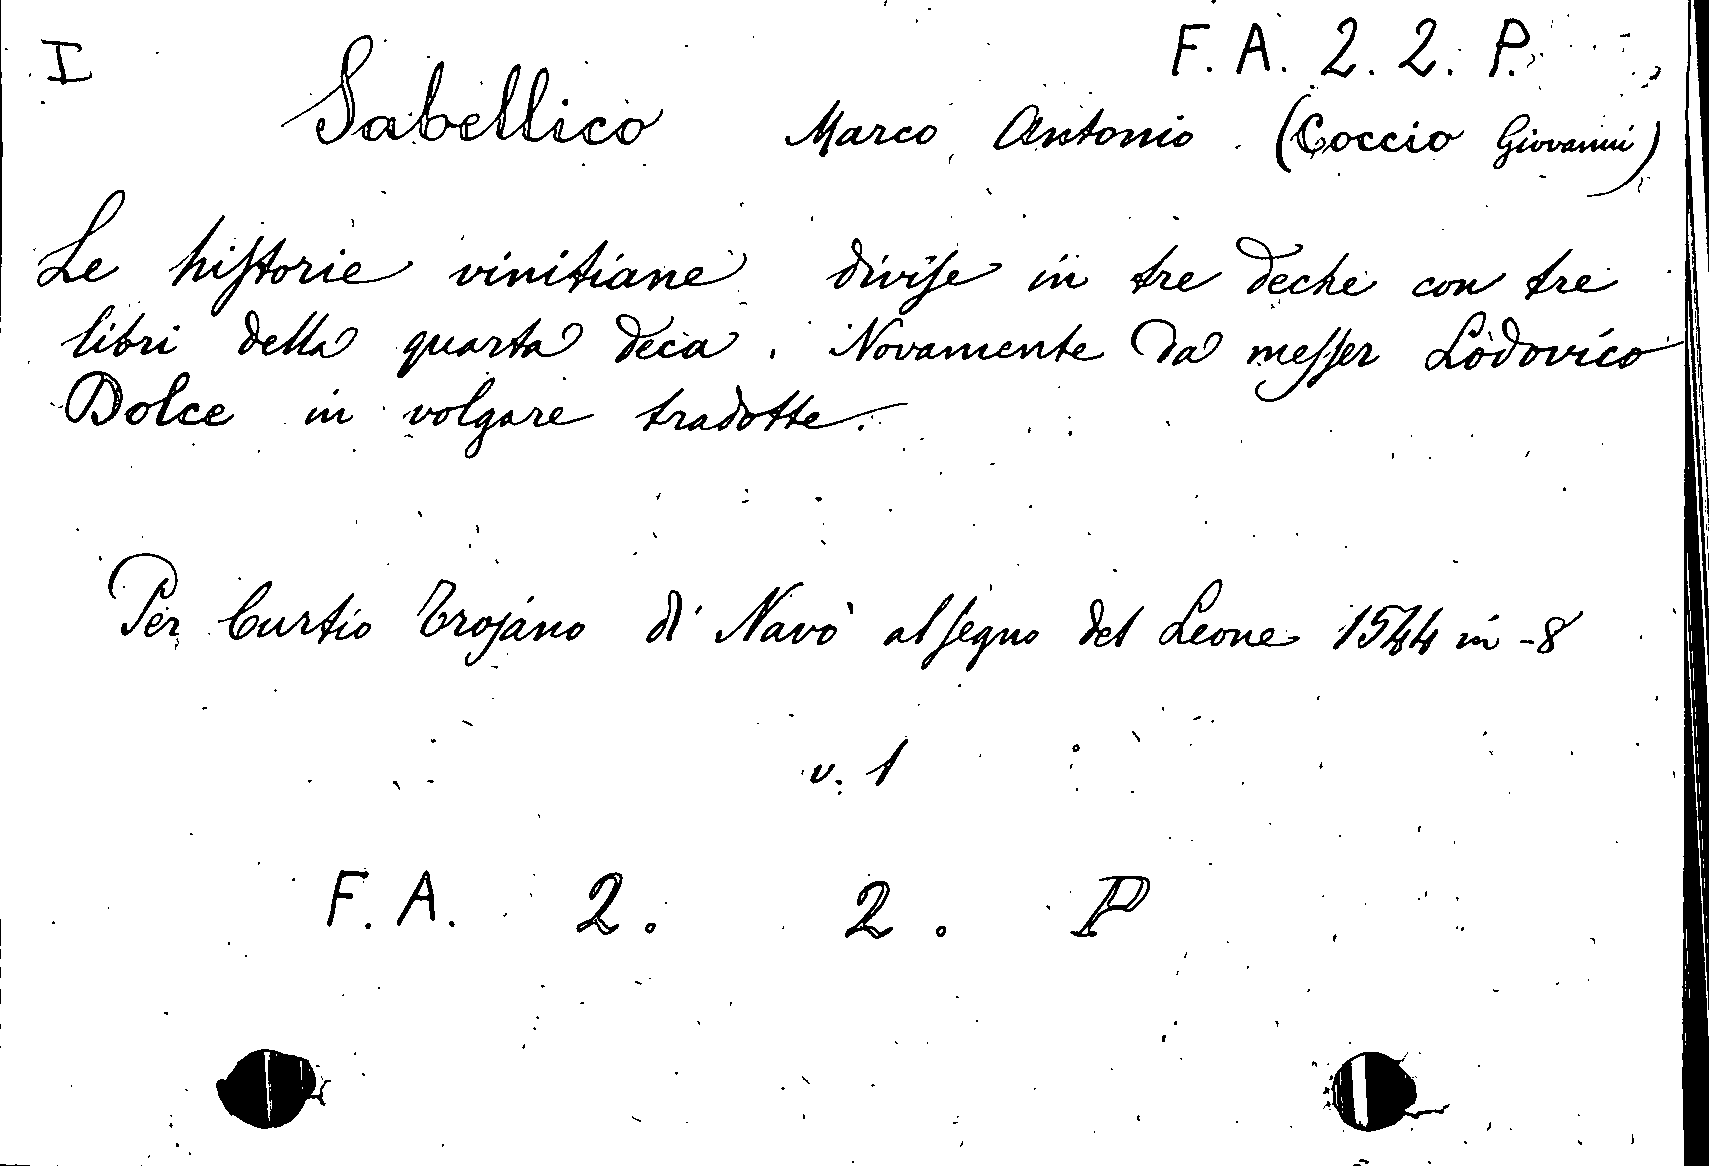 I
F. A. 2. 2. P.
Sabellico Marco Antonio (Coccio Giovanni)
Le hiſtorie vinitiane diviſe in tre deche con tre
libri della quarta deca. Novamente da meſſer Lodovico
Dolce in volgare tradotte.
Per Curtio Trojano di Navò al ſegno del Leone 1544 in -8
v. 1
F. A. 2. 2. P